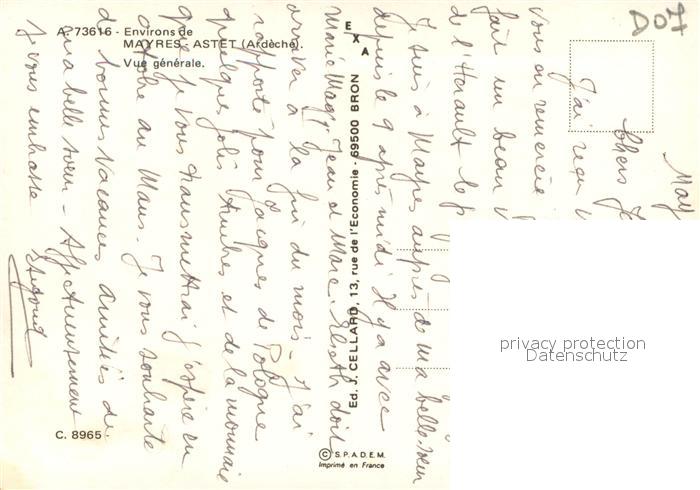 A. 73616 - Environs de
MAYRES - ASTET (Ardèche).
Vue générale.
EXA
D07
Ed. J. CELLARD, 13, rue de l'Economie - 69500 BRON
C. 8965 -
© S.P.A.D.E.M.
Imprimé en France
privacy protection
Datenschutz
May
Chers J
J'ai reçu
vous en remercie
fait un beau
de l'Hérault le
Je suis à Mayres auprès de ma belle soeur
depuis le 9 après midi. Il y a avec
Marie Mag, Jean et Marc. doit
arriver à la fin du mois - J'ai
rapporté pour Jacques de Pologne
quelques jolis timbres et de la monnaie
que je vous transmettrai j'espère en
octobre au Mans. Je vous souhaite
de bonnes vacances amitiés de
ma belle soeur - Affectueusement
Je vous embrasse